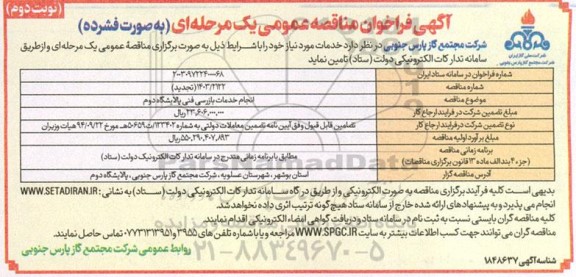 (نوبت دوم)
آگهی فراخوان مناقصه عمومی یک مرحله‌ای (به صورت فشرده)
شرکت ملی گاز ایران
شرکت مجتمع گاز پارس جنوبی
شرکت مجتمع گاز پارس جنوبی در نظر دارد خدمات مورد نیاز خود را با شرایط ذیل به صورت برگزاری مناقصه عمومی یک مرحله‌ای و از طریق
سامانه تدارکات الکترونیکی دولت (ستاد) تامین نماید
شماره فراخوان در سامانه ستاد ایران
شماره مناقصه ۱۴۰۳/۲۱۳۲ (تجدید)
موضوع مناقصه انجام خدمات بازرسی فنی پالایشگاه دوم
مبلغ تضمین شرکت در فرایند ارجاع کار ۲۳,۶۰۶,۰۰۰,۰۰۰ ریال
نوع تضمین شرکت در فرایند ارجاع کار تضامین قابل قبول وفق آیین نامه تضمین معاملات دولتی به شماره ۱۲۳۴۰۲/ت۵۰۶۵۹ه مورخ ۹۴/۰۹/۲۲ هیات وزیران
مبلغ برآورد اولیه مناقصه ۵۵۰,۲۹۰,۴۰۷,۸۹۳ ریال
برنامه زمانی مناقصه
(جزء ۴ بند الف ماده ۱۳ قانون برگزاری مناقصات) مطابق با برنامه زمانی مندرج در سامانه تدارکات الکترونیک دولت (ستاد)
آدرس مناقصه گزار استان بوشهر، شهرستان عسلویه، شرکت مجتمع گاز پارس جنوبی، پالایشگاه دوم
بدیهی است کلیه فرآیند برگزاری مناقصه به صورت الکترونیکی و از طریق درگاه سامانه تدارکات الکترونیکی دولت (ستاد) به نشانی: WWW.SETADIRAN.IR
انجام می پذیرد و به پیشنهادهای ارائه شده خارج از سامانه ستاد هیچ گونه ترتیب اثری داده نخواهد شد.
کلیه مناقصه گران بایستی نسبت به ثبت نام در سامانه ستاد و دریافت گواهی امضاء الکترونیکی اقدام نمایند.
مناقصه گران می توانند جهت کسب اطلاعات بیشتر به سایت WWW.SPGC.IR مراجعه و یا با شماره تلفن های ۳۹۵۵ و ۰۷۷۳۱۳۱۳۹۵۱ تماس حاصل نمایند.
شناسه آگهی ۱۸۴۸۶۳۷
روابط عمومی شرکت مجتمع گاز پارس جنوبی
ParsNamadData
۰۲۱-۸۸۳۴۹۶۷۰-۵